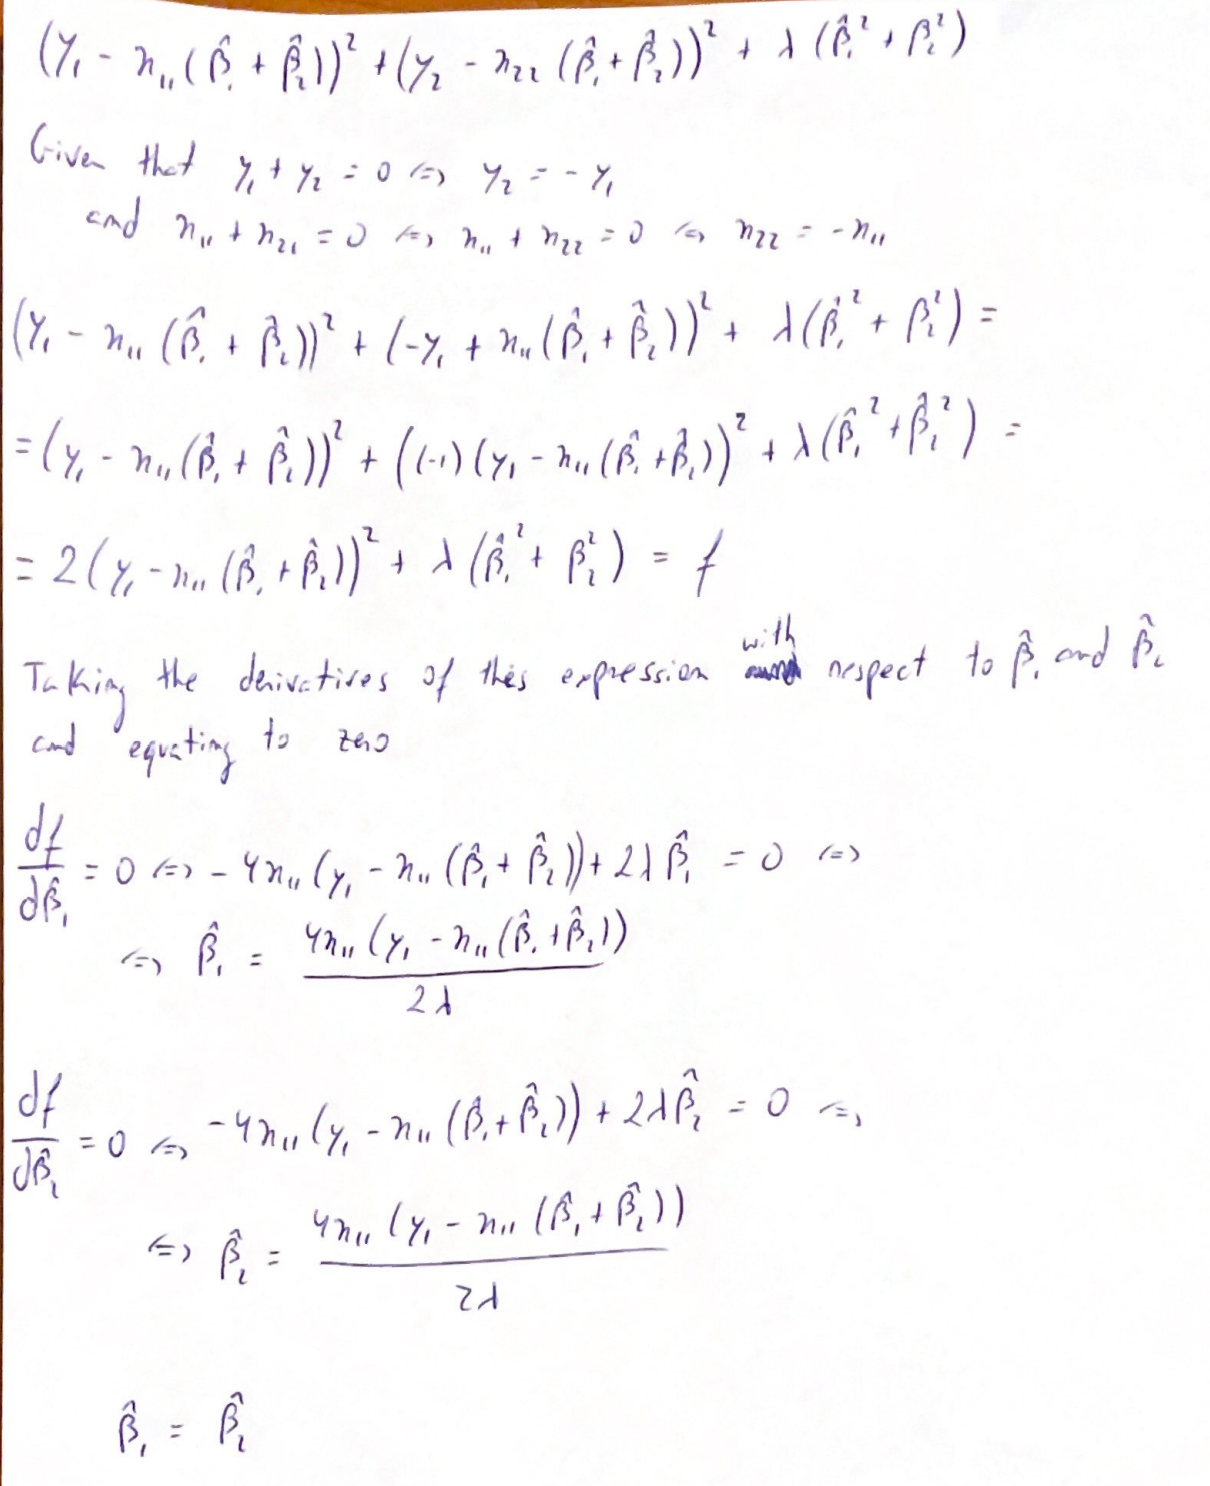 (y₁ - x₁₁(β̂₁ + β̂₂))² + (y₂ - x₂₂(β̂₁ + β̂₂))² + λ(β̂₁² + β₂²)
Given that y₁ + y₂ = 0 ⇔ y₂ = -y₁
and x₁₁ + x₂₁ = 0 ⇔ x₁₁ + x₂₂ = 0 ⇔ x₂₂ = -x₁₁
(y₁ - x₁₁(β̂₁ + β̂₂))² + (-y₁ + x₁₁(β̂₁ + β̂₂))² + λ(β̂₁² + β₂²) =
= (y₁ - x₁₁(β̂₁ + β̂₂))² + ((-1)(y₁ - x₁₁(β̂₁ + β̂₂))² + λ(β̂₁² + β̂₂²) =
= 2(y₁ - x₁₁(β̂₁ + β̂₂))² + λ(β̂₁² + β₂²) = f
Taking the derivatives of this expression with respect to β̂₁ and β̂₂
and equating to zero
df/dβ̂₁ = 0 ⇔ -4x₁₁(y₁ - x₁₁(β̂₁ + β̂₂)) + 2λβ̂₁ = 0 ⇔
⇔ β̂₁ = 4x₁₁(y₁ - x₁₁(β̂₁ + β̂₂)) / 2λ
df/dβ̂₂ = 0 ⇔ -4x₁₁(y₁ - x₁₁(β̂₁ + β̂₂)) + 2λβ̂₂ = 0 ⇔
⇔ β̂₂ = 4x₁₁(y₁ - x₁₁(β̂₁ + β̂₂)) / 2λ
β̂₁ = β̂₂